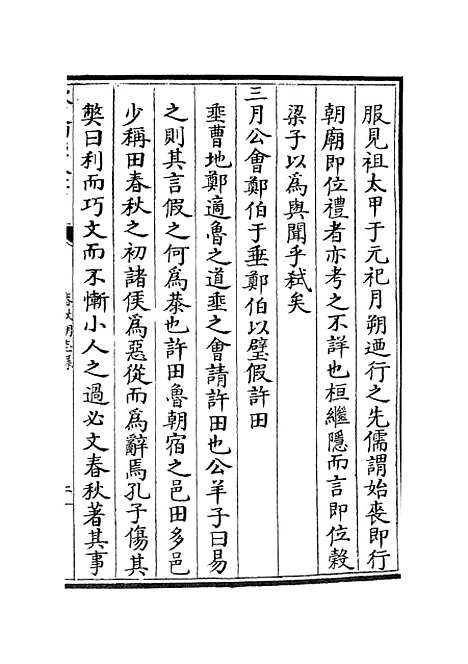 服見祖太甲于元祀月朔迺行之先儒謂始喪即行
朝廟即位禮者亦考之不詳也桓繼隱而言即位榖
梁子以為與聞乎弑矣
三月公會鄭伯于垂鄭伯以璧假許田
垂曹地鄭適魯之道垂之會請許田也公羊子曰易
之則其言假之何為恭也許田魯朝宿之邑田多邑
少稱田春秋之初諸侯為惡從而為辭焉孔子傷其
獘曰利而巧文而不慚小人之過必文春秋著其事